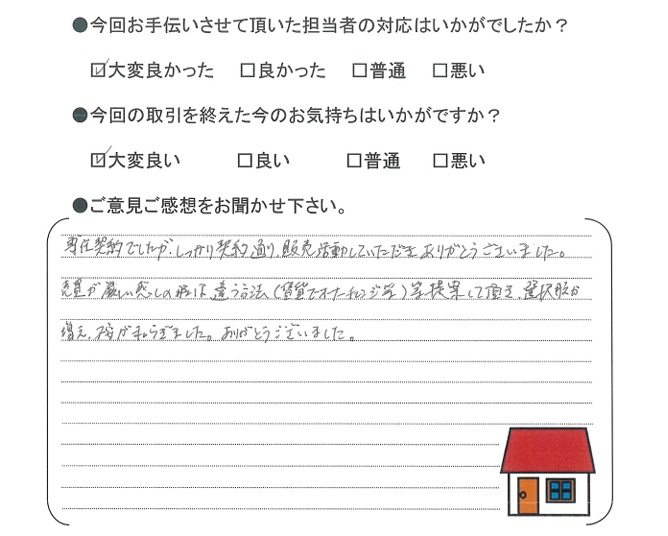 ●今回お手伝いさせて頂いた担当者の対応はいかがでしたか？
☑大変良かった □良かった □普通 □悪い
●今回の取引を終えた今のお気持ちはいかがですか？
☑大変良い □良い □普通 □悪い
●ご意見ご感想をお聞かせ下さい。
専任契約でしたが、しっかり契約通り、販売活動していただき、ありがとうございました。
売買が厳しい感じの時は、違う方法(賃貸でオーナーチェンジ等)を提案して頂き、選択肢が
増え、不安が和らぎました。ありがとうございました。